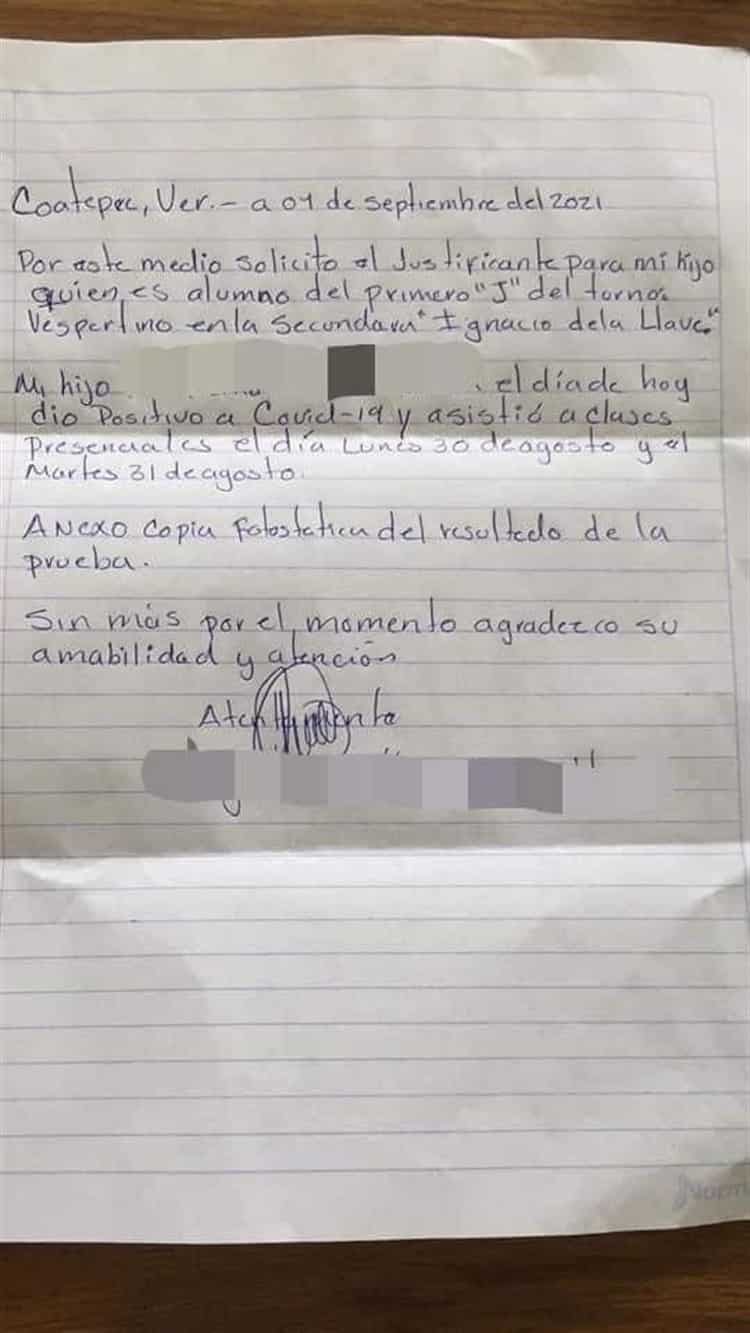 Coatepec, Ver.- a 01 de septiembre del 2021
Por este medio solicito el Justificante para mi hijo
quien es alumno del primero "J" del turno
Vespertino en la Secundara "Ignacio de la Llave"
Mi hijo , el día de hoy
dio Positivo a Covid-19 y asistió a clases
Presenciales el día Lunes 30 de agosto y el
Martes 31 de agosto.
Anexo copia Fotostatica del resultado de la
prueba.
Sin más por el momento agradezco su
amabilidad y atención
Atentamente
Norm